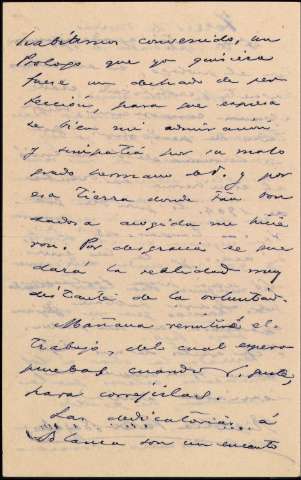 habíamos convenido, un
Prologo que yo quisiera
fuese un dechado de per
fección, para que expresa
se bien mi admiración
y simpatía por su malo
grado hermano de V. y por
esa tierra donde tan bon
dadosa acogida me hicie
ron. Por desgracia se que
dará la realidad muy
distante de la voluntad.
Mañana remitiré el
trabajo, del cual espero
pruebas cuando V. guste,
para corregirlas.
Las dedicatorias á
Blanca son un encanto